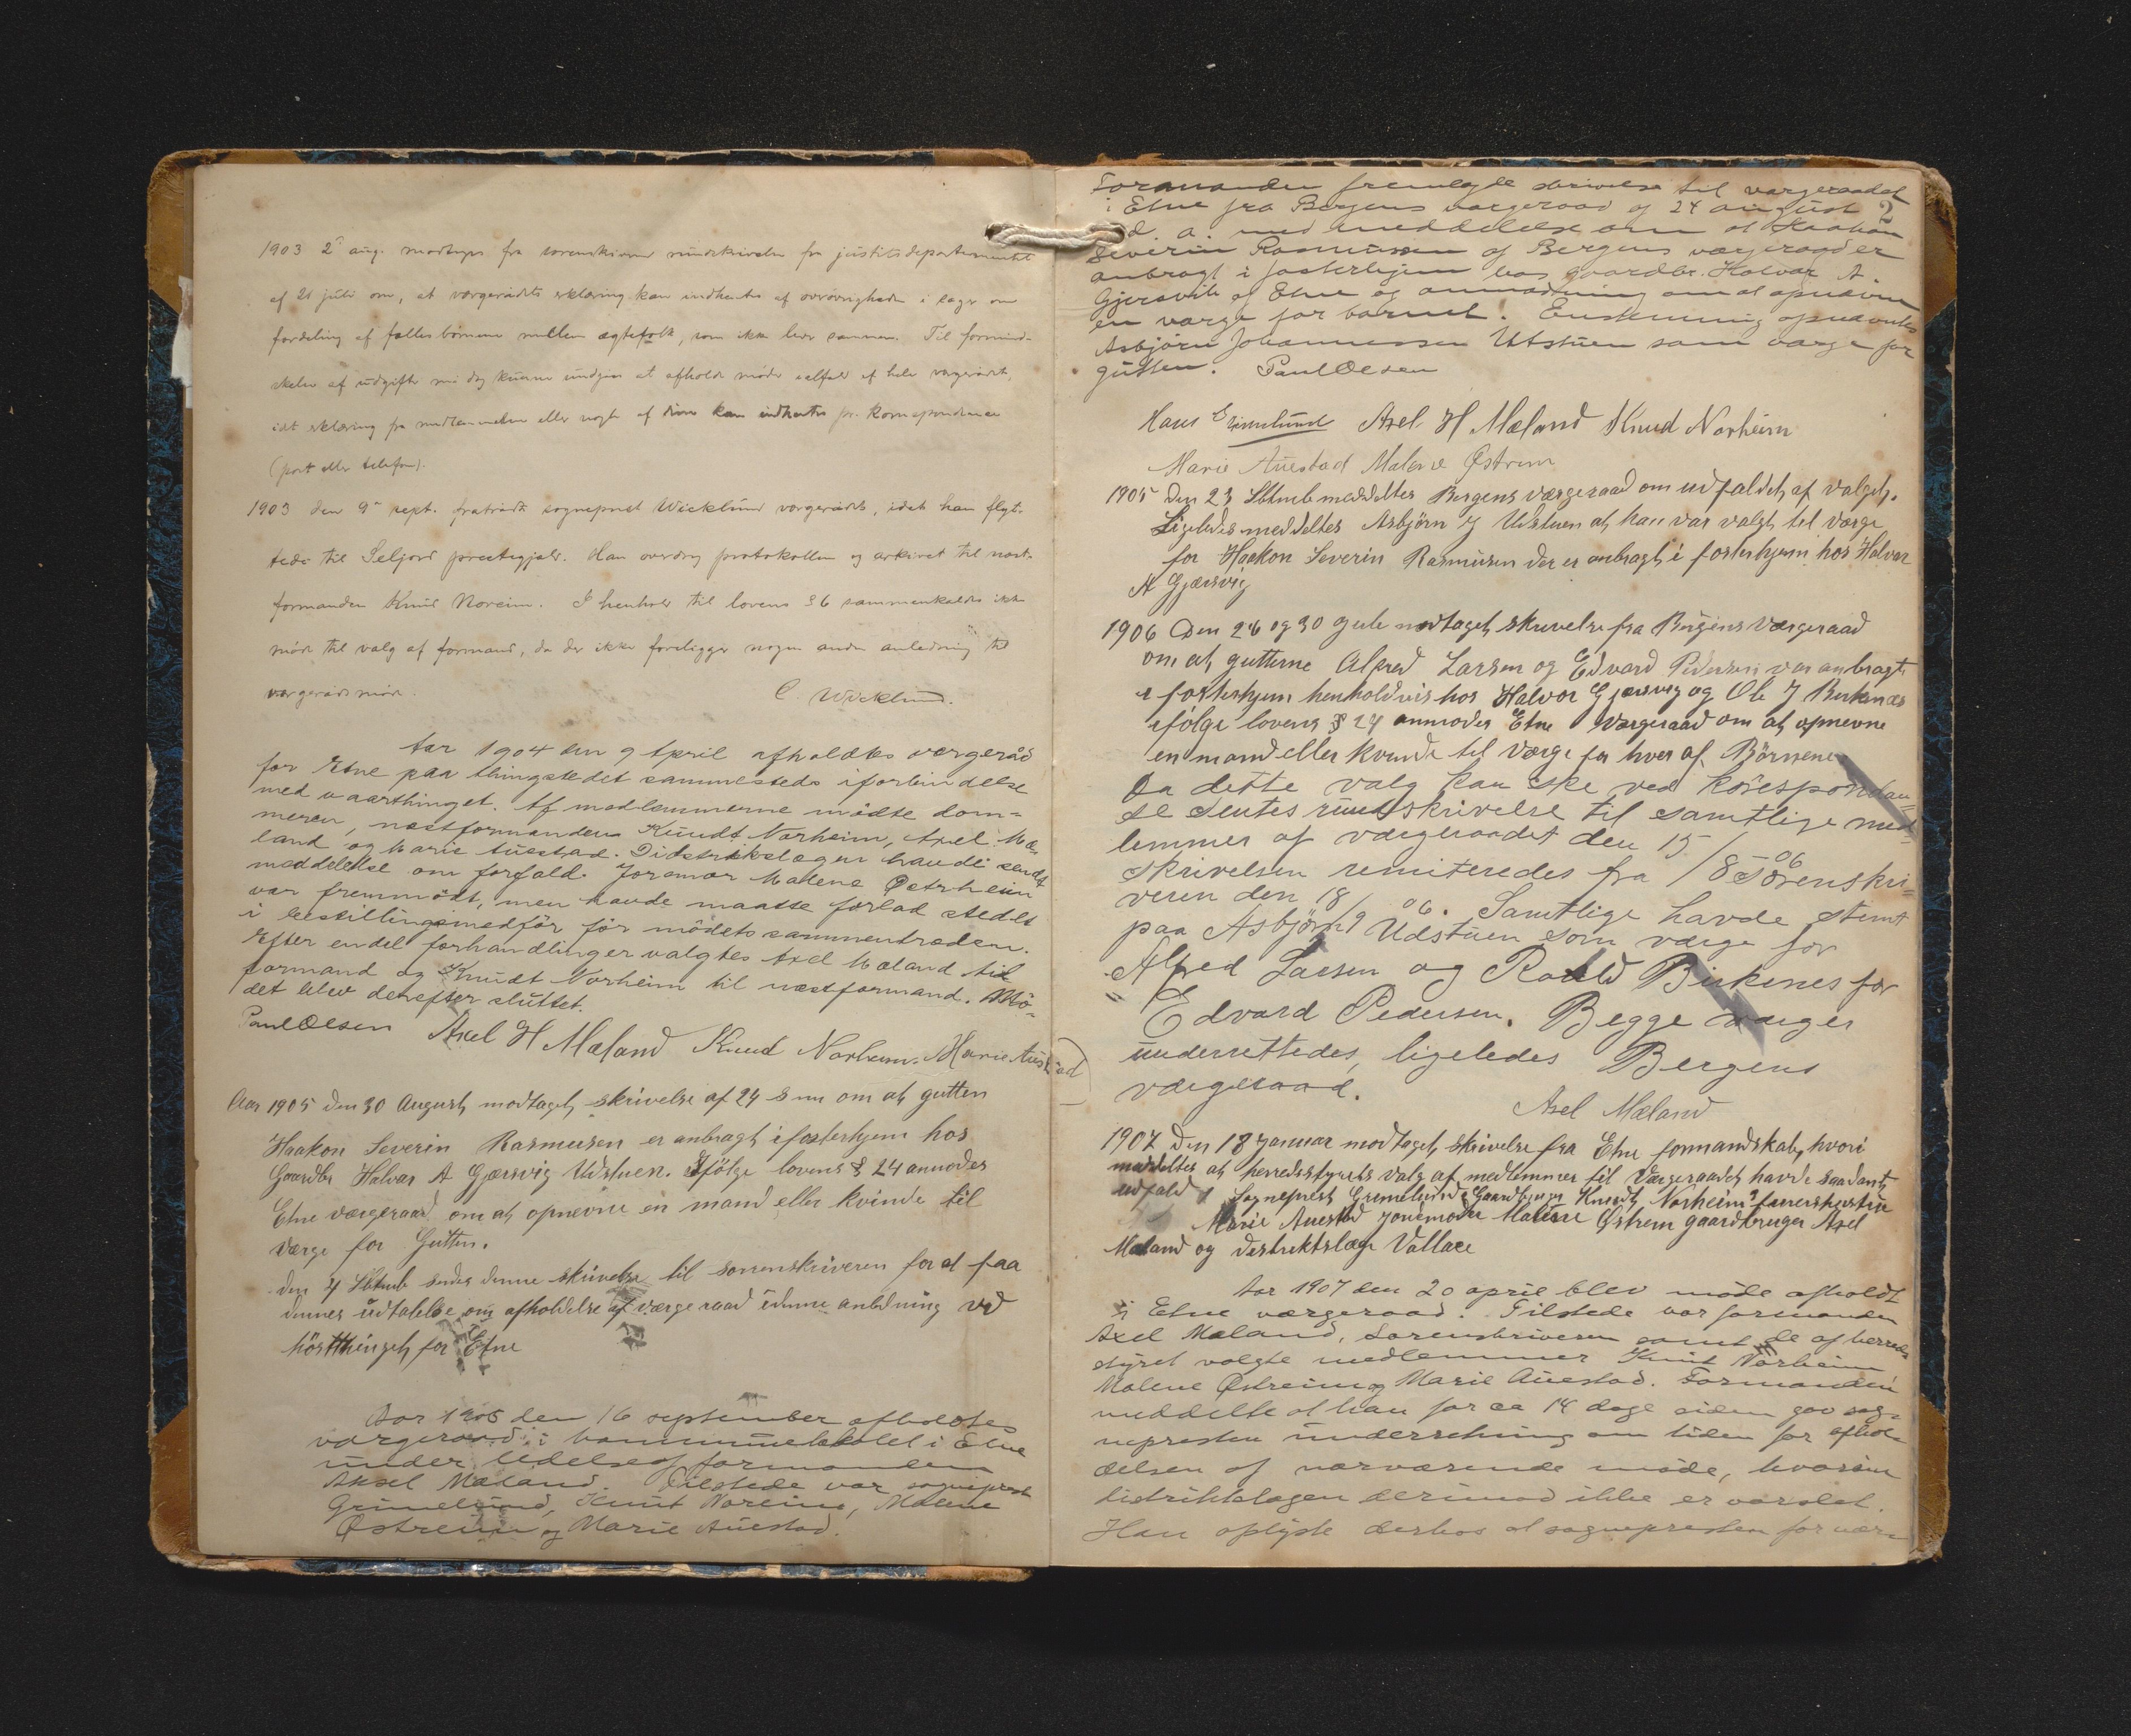 1903 2ᵈ aug. modtoges fra sorenskriveren rundskrivelse fra justitsdepartementet
af 21 juli om, at værgerådets erklæring kan indhentes af overøvrigheden i sager om
fordeling af fælles børnene mellem ægtefolk, som ikke lever sammen. Til formind-
skelse af udgifter må dog kunne undgåes at afholde møder ialfald af hele værgerådet,
idet erklæring fra medlemmerne eller nogle af disse kan indhentes pr. korrespondance
(post eller telefon).
1903 den 9ᵈᵉ sept. fratrådte sogneprest Wicklund værgerådet, idet han flyt-
tede til Seljord prestegjeld. Han overdrog protokollen og arkivet til næst-
formanden Knud Noreim. I henhold til lovens § 6 sammenkaldes ikke
møde til valg af formand, da der ikke foreligger nogen anden anledning til
værgerådsmøde.
C. Wicklund.
Aar 1904 den 9 April afholdtes værgeråd
for Etne paa thingstedet sammesteds i forbindelse
med vaarthinget. Af medlemmerne mødte dom=
meren, næstformanden Knudt Norheim, Axel Mæ-
land og Marie Auestad. Distriktslægen havde sendt
meddelelse om forfald. Joremor Malene Østrheim
var fremmødt, men havde maatte forlad stedet
i bestillingsmedfør før mødets sammentræden.
Efter endel forhandlinger valgtes Axel Mæland til
formand og Knudt Norheim til næstformand. Mö-
det blev derefter sluttet.
Paul Olsen Axel H Mæland Knud Norheim. Marie Auestad
Aar 1905 den 30 August modtaget skrivelse af 24 s m om at gutten
Haakon Severin Rasmusen er anbragt i fosterhjem hos
Gaardbr Halvar A Gjærsvig Udstuen. Ifölge lovens § 24 anmodes
Etne værgeraad om at opnevne en mand eller kvinde til
Værge for Gutten.
den 4 Sbtmb sendes denne skrivelse til sorrenskriveren for at faa
dennes udtalelse om afholdelse af værgeraad i denne anledning ved
hösttinget for Etne
Aar 1905 den 16 september afholdtes
værgeraad i kommunelokalet i Etne
under ledelse af formanden
Aksel Mæland. Tilstede var sogneprest
Grimelund, Knut Noreim, Malene
Østreim og Marie Auestad.
Formanden fremlagde skrivelse til værgeraadet 2
i Etne fra Bergens værgeraad af 24 august
d. a. med meddelelse om at Haakon
Severin Rasmussen af Bergens værgeraad er
anbragt i fosterhjem hos gaardbr. Halvar A.
Gjersvik af Etne og anmodning om at opnævne
en værge for barnet. Enstemmig opnævntes
Asbjørn Johannessen Utstuen som værge for
gutten. Paul Olsen
Hans Grimelund Axel H Mæland Knud Norheim
Marie Auestad Malene Østrem
1905 Den 23 Sbtmb meddeltes Bergens værgeraad om udfaldet af valget.
Ligeledes meddeltes Asbjørn J Udstuen at han var valgt til værge
for Haakon Severin Rasmusen der er anbragt i fosterhjem hos Halvar
A Gjærsvig
1906 Den 26 og 30 Jule modtaget skrivelse fra Bergens Værgeraad
om at gutterne Alfred Larsen og Edvard Pedersen var anbragt
i fosterhjem henholdvis hos Halvor Gjærsvig og Ole J Birkenæs
ifölge lovens § 24 anmodes Etne Værgeraad om at opnevne
en mand eller kvinde til Værge for hver af Börnene
Da dette valg kan ske ved körespondan=
se sentes rundskrivelse til samtlige med=
lemmer af værgeraadet den 15/8 06
Skrivelsen remiteredes fra Sörenskri=
veren den 18/9 06. Samtlige havde stemt
paa Asbjörn Udstuen som værge for
Alfred Larsen og Roald Birkenes for
Edvard Pedersen. Begge værger
underrettedes, ligeledes Bergens
værgeraad.
Axel Mæland
1907 Den 18 Januar modtaget skrivelse fra Etne formandskab, hvori
meddeltes at herredsstyrets valg af medlemmer til Værgeraadet havde saadant
udfald Sogneprest Grimelund Gaardbruger Knudt Norheim
Marie Auestad Jordmoder Malene Østrem gaardbruger Axel
Mæland og destriktslæge Vallace
Aar 1907 den 20 april blev møde afholdt
i Etne værgeraad. Tilstede var formanden
Axel Mæland, Sorenskriveren samt de af herreds
styret valgte medlemmer Knut Norheim
Malene Østreim og Marie Auestad. Formanden
meddelte at han for ca 14 dage siden gav sog-
nepresten underretning om tiden for afhol-
delsen af nærværende møde, hvorom
distriktslægen derimod ikke er varslet.
Han oplyste derhos at sognepresten for nær-